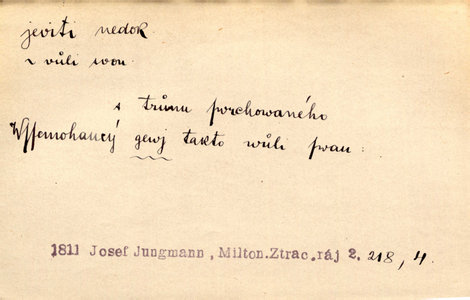 jeviti nedok.
z vůli svou
s trůnu porchowaného
Wssemohaucý gewj takto wůli swau:
1811 Josef Jungmann, Milton.Ztrac.ráj 2. 218, 4.